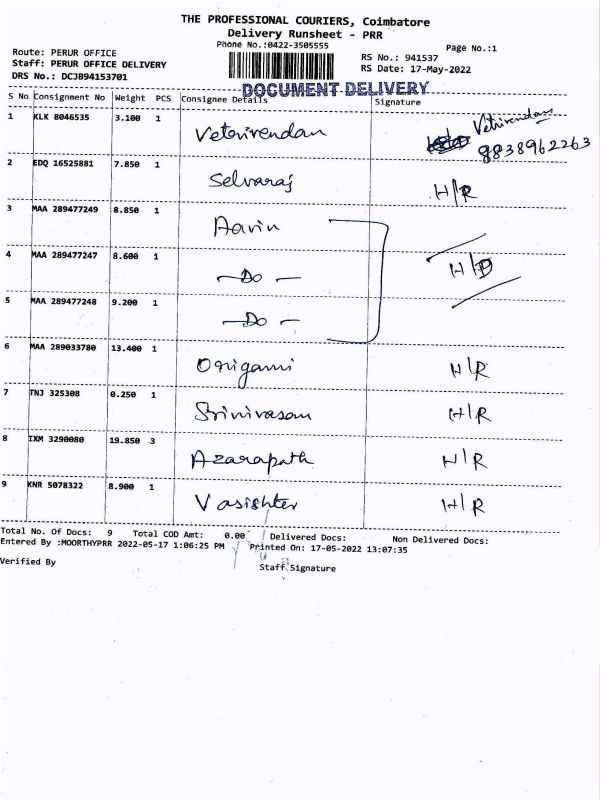 THE PROFESSIONAL COURIERS, Coimbatore
Delivery Runsheet - PRR
Phone No.:0422-3505555
Page No.:1
Route: PERUR OFFICE
RS No.: 941537
Staff: PERUR OFFICE DELIVERY
RS Date: 17-May-2022
DRS No.: DCJB94153701
DOCUMENT DELIVERY
S No Consignment No Weight PCS Consignee Details Signature
1 KLK 8046535 3.100 1 Vetrivendan Vetrivendan
8838962263
2 EDQ 16525881 7.850 1 Selvaraj H/R
3 MAA 289477249 8.850 1 Aavin
4 MAA 289477247 8.600 1 —Do— H/D
5 MAA 289477248 9.200 1 —Do—
6 MAA 289033780 13.400 1 Origami H/R
7 TNJ 325308 0.250 1 Srinivasan H/R
8 IXM 3290080 19.850 3 Azarapath H/R
9 KNR 5078322 8.900 1 Vasishter H/R
Total No. Of Docs: 9 Total COD Amt: 0.00 Delivered Docs: Non Delivered Docs:
Entered By :MOORTHYPRR 2022-05-17 1:06:25 PM Printed On: 17-05-2022 13:07:35
Verified By
Staff Signature